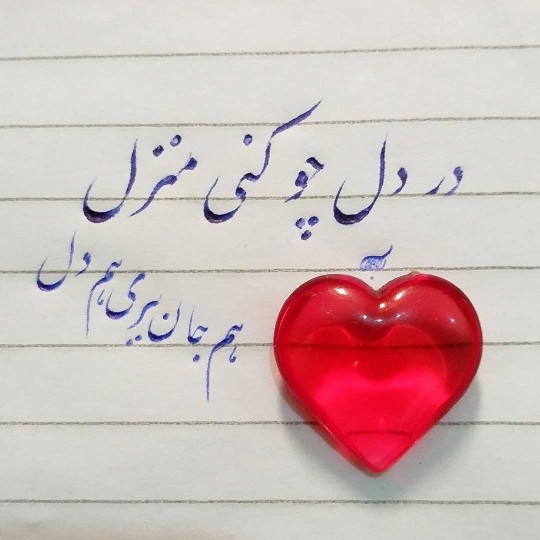 در دل چو کنی منزل
هم جان ببری هم دل